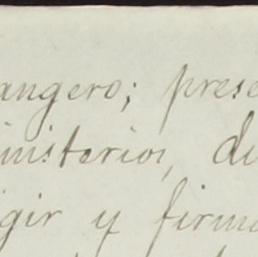 angero; prese
inisterios, di
igir y firma